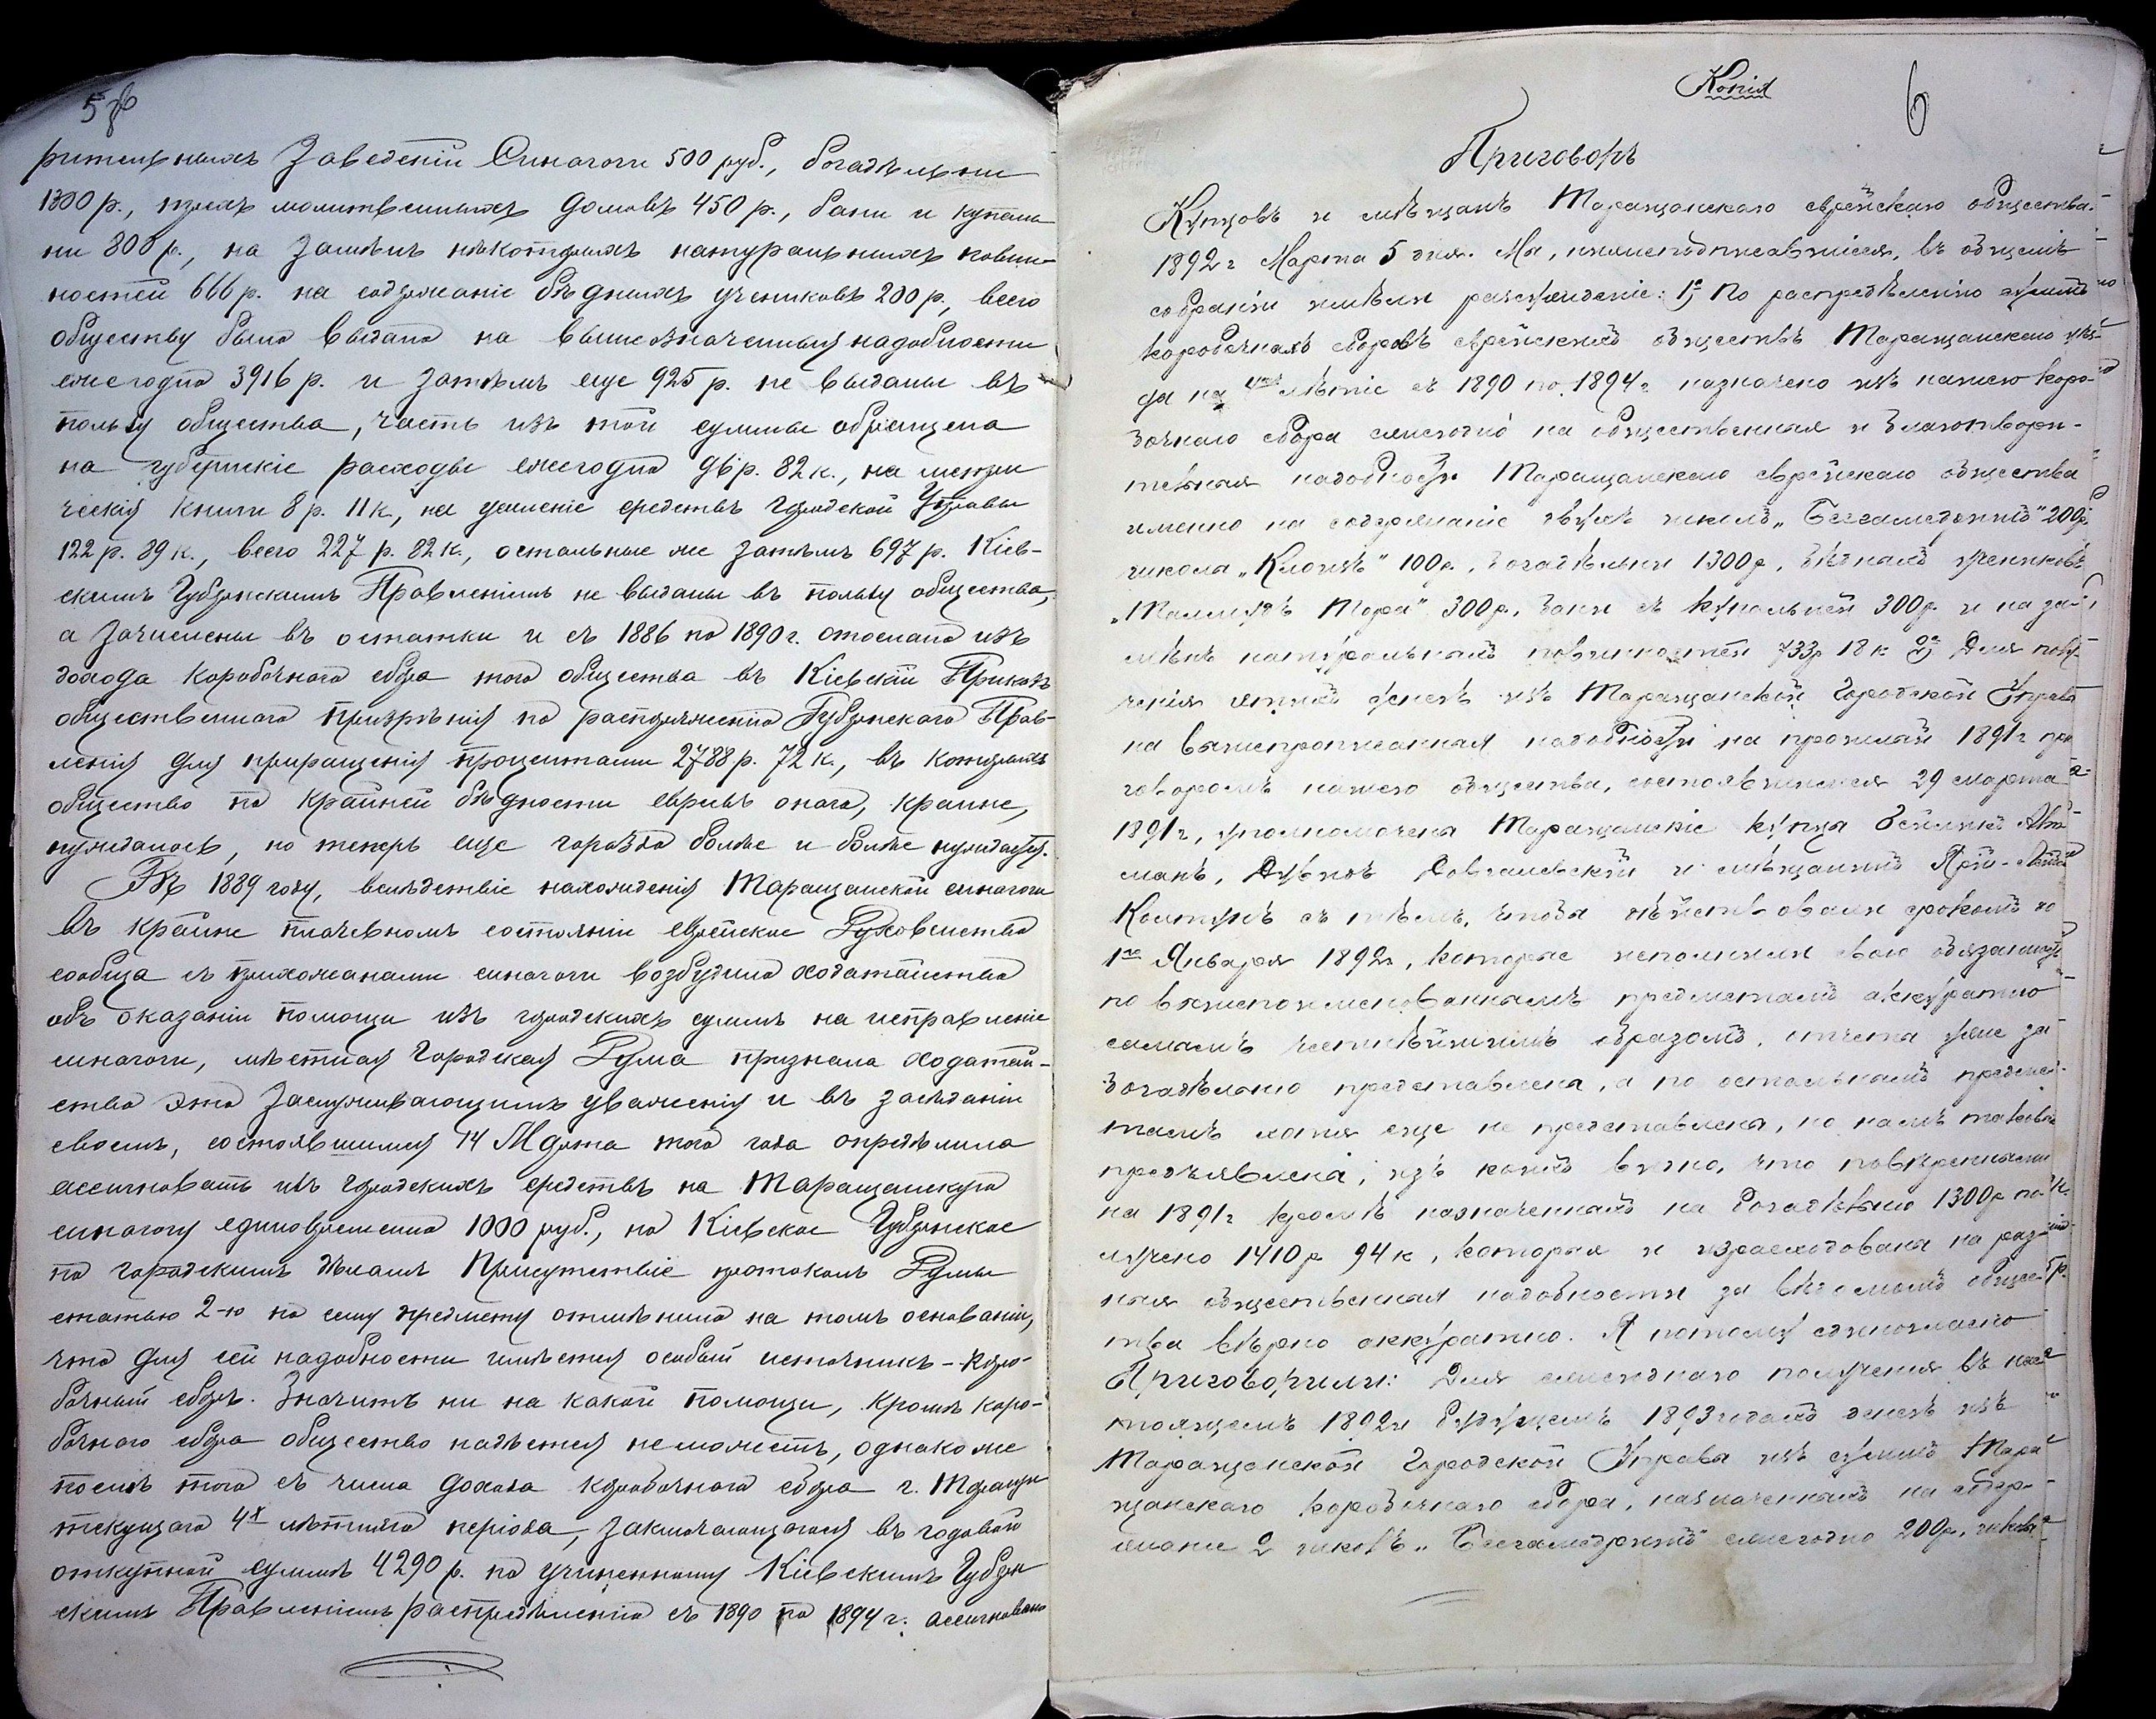 5 об
рительныхъ Заведеній Синагоги 500 руб., богадѣльни
1300 р., трехъ молитвенныхъ домовъ 450 р., бани и купаль
ни 800 р., на Замѣнъ нѣкоторыхъ натуральныхъ повин-
ностей 666 р. на содержаніе бѣдныхъ учениковъ 200 р., всего
обществу было выдано на вышеозначенныя надобности
ежегодно 3916 р. и затѣмъ еще 925 р. не выданы въ
пользу общества, часть изъ той суммы обращена
на губернскіе расходы ежегодно 96 р. 82 к., на метри
ческія книги 8 р. 11 к., на усиленіе средствъ городской Управы
122 р. 89 к., всего 227 р. 82 к., остальные же затѣмъ 697 р. Кіев-
скимъ Губернскимъ Правленіемъ не выданы въ пользу общества,
а зачислены въ остатки и съ 1886 по 1890 г. отослано изъ
дохода коробочнаго сбора того общества въ Кіевскій Приказъ
общественнаго Призрѣнія по распоряженію Губернскаго Прав-
ленія для приращенія процентами 2788 р. 72 к., въ которыхъ
общество по крайней бѣдности евреевъ онаго, крайне,
нуждалось, но теперь еще гораздо болѣе и болѣе нуждается.
Въ 1889 году, вслѣдствіе нахожденія Таращанской синагоги
въ крайне плачевномъ состояніи еврейское Духовенство
сообща съ прихожанами синагоги возбудило ходатайство
объ оказаніи помощи изъ городскихъ суммъ на исправленіе
синагоги, мѣстная Городская Дума признала ходатай-
ство это заслуживающимъ уваженія и въ засѣданіи
своемъ, состоявшимся 14 Марта того года опредѣлила
ассигновать изъ городскихъ средствъ на Таращанскую
синагогу единовременно 1000 руб., но Кіевское Губернское
по городскимъ дѣламъ Присутствіе протоколъ Думы
статью 2-ю по сему предмету отмѣнило на томъ основаніи,
что для сей надобности имѣется особый источникъ - коро-
бочный сборъ. Значитъ ни на какой помощи, кромѣ коро-
бочнаго сбора общество надѣется неможетъ, однако же
послѣ того съ числа дохода коробочнаго сбора г. Таращи
текущаго 4х лѣтняго періода, заключающагося въ годовой
откупной суммѣ 4290 р. по учиненному Кіевскимъ Губерн
скимъ Правленіемъ распредѣленію съ 1890 по 1894 г. ассигновано
Копія
6
Приговоръ
Купцовъ и мѣщанъ Таращанскаго еврейскаго общества.
1892 г Марта 5 дня. Мы, нижеподписавшіеся, въ общемъ
собраніи имѣли разсужденіе: 1е) По распредѣленію суммъ
коробочныхъ сборовъ еврейскихъ обществъ Таращанскаго уѣз-
да на 4хъ лѣтіе съ 1890 по 1894 г. назначено изъ нашего коро-
бочнаго сбора ежегодно на общественныя и благотвори-
тельныя надобности Таращанскаго еврейскаго общества
именно на содержаніе двухъ школъ „Бесгамедрешъ" 200 р.
школа „Клоизъ" 100 р., богадѣльни 1300 р., бѣдныхъ учениковъ
„Талмудъ Тора" 300 р., бани съ купальней 300 р. и на за-
мѣнъ натуральныхъ повинностей 733 р 18 к 2е) Для полу-
ченія этихъ денегъ изъ Таращанской Городской Управы
на вышепрописанныя надобности на прошлый 1891 г при
говоромъ нашего общества, состоявшимся 29 марта
1891 г, уполномочены Таращанскіе купцы Зейликъ
манъ, Довгалевскій и мѣщанинъ
Колтунъ съ тѣмъ, чтобы дѣйствовали срокомъ по
1го Января 1892 г, которые исполнили свою обязанность
по вышепоименованнымъ предметамъ аккуратно
самымъ честнѣйшимъ образомъ, отчета уже за
богадѣльню представлена, а по остальнымъ предме-
тамъ хотя еще не представлена, но намъ таковы
предъявлена, изъ коихъ видно, что повѣренными
на 1891 г кромѣ назначенныхъ на богадѣльню 1300 р по-
лучено 1410 р 94 к, которыя и израсходованы на раз-
ныя общественныя надобности за вѣдомомъ общес
тва вѣрно аккуратно. А потому единогласно
Приговорили: Для ежегоднаго полученія въ нас
тоящемъ 1892 и будущемъ 1893 годахъ денегъ изъ
Таращанской Городской Управы изъ суммъ Тара
щанскаго коробочнаго сбора, назначенныхъ на содер-
жаніе 2 школъ „Бесгамедрешъ" ежегодно 200 р., школы